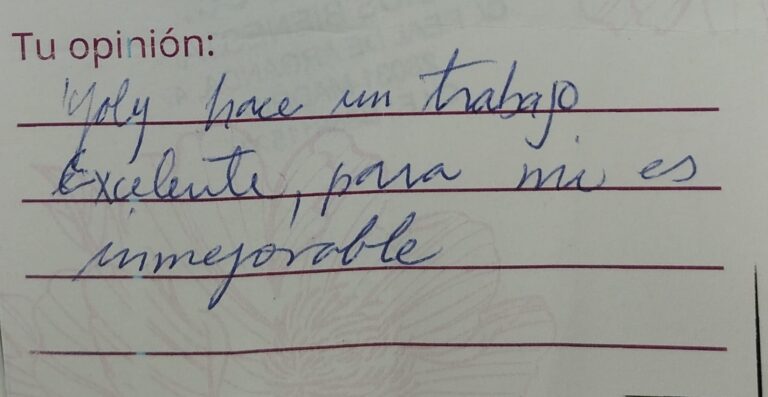 Tu opinión:
Yoly hace un trabajo
Exelente, para mi es
inmejorable